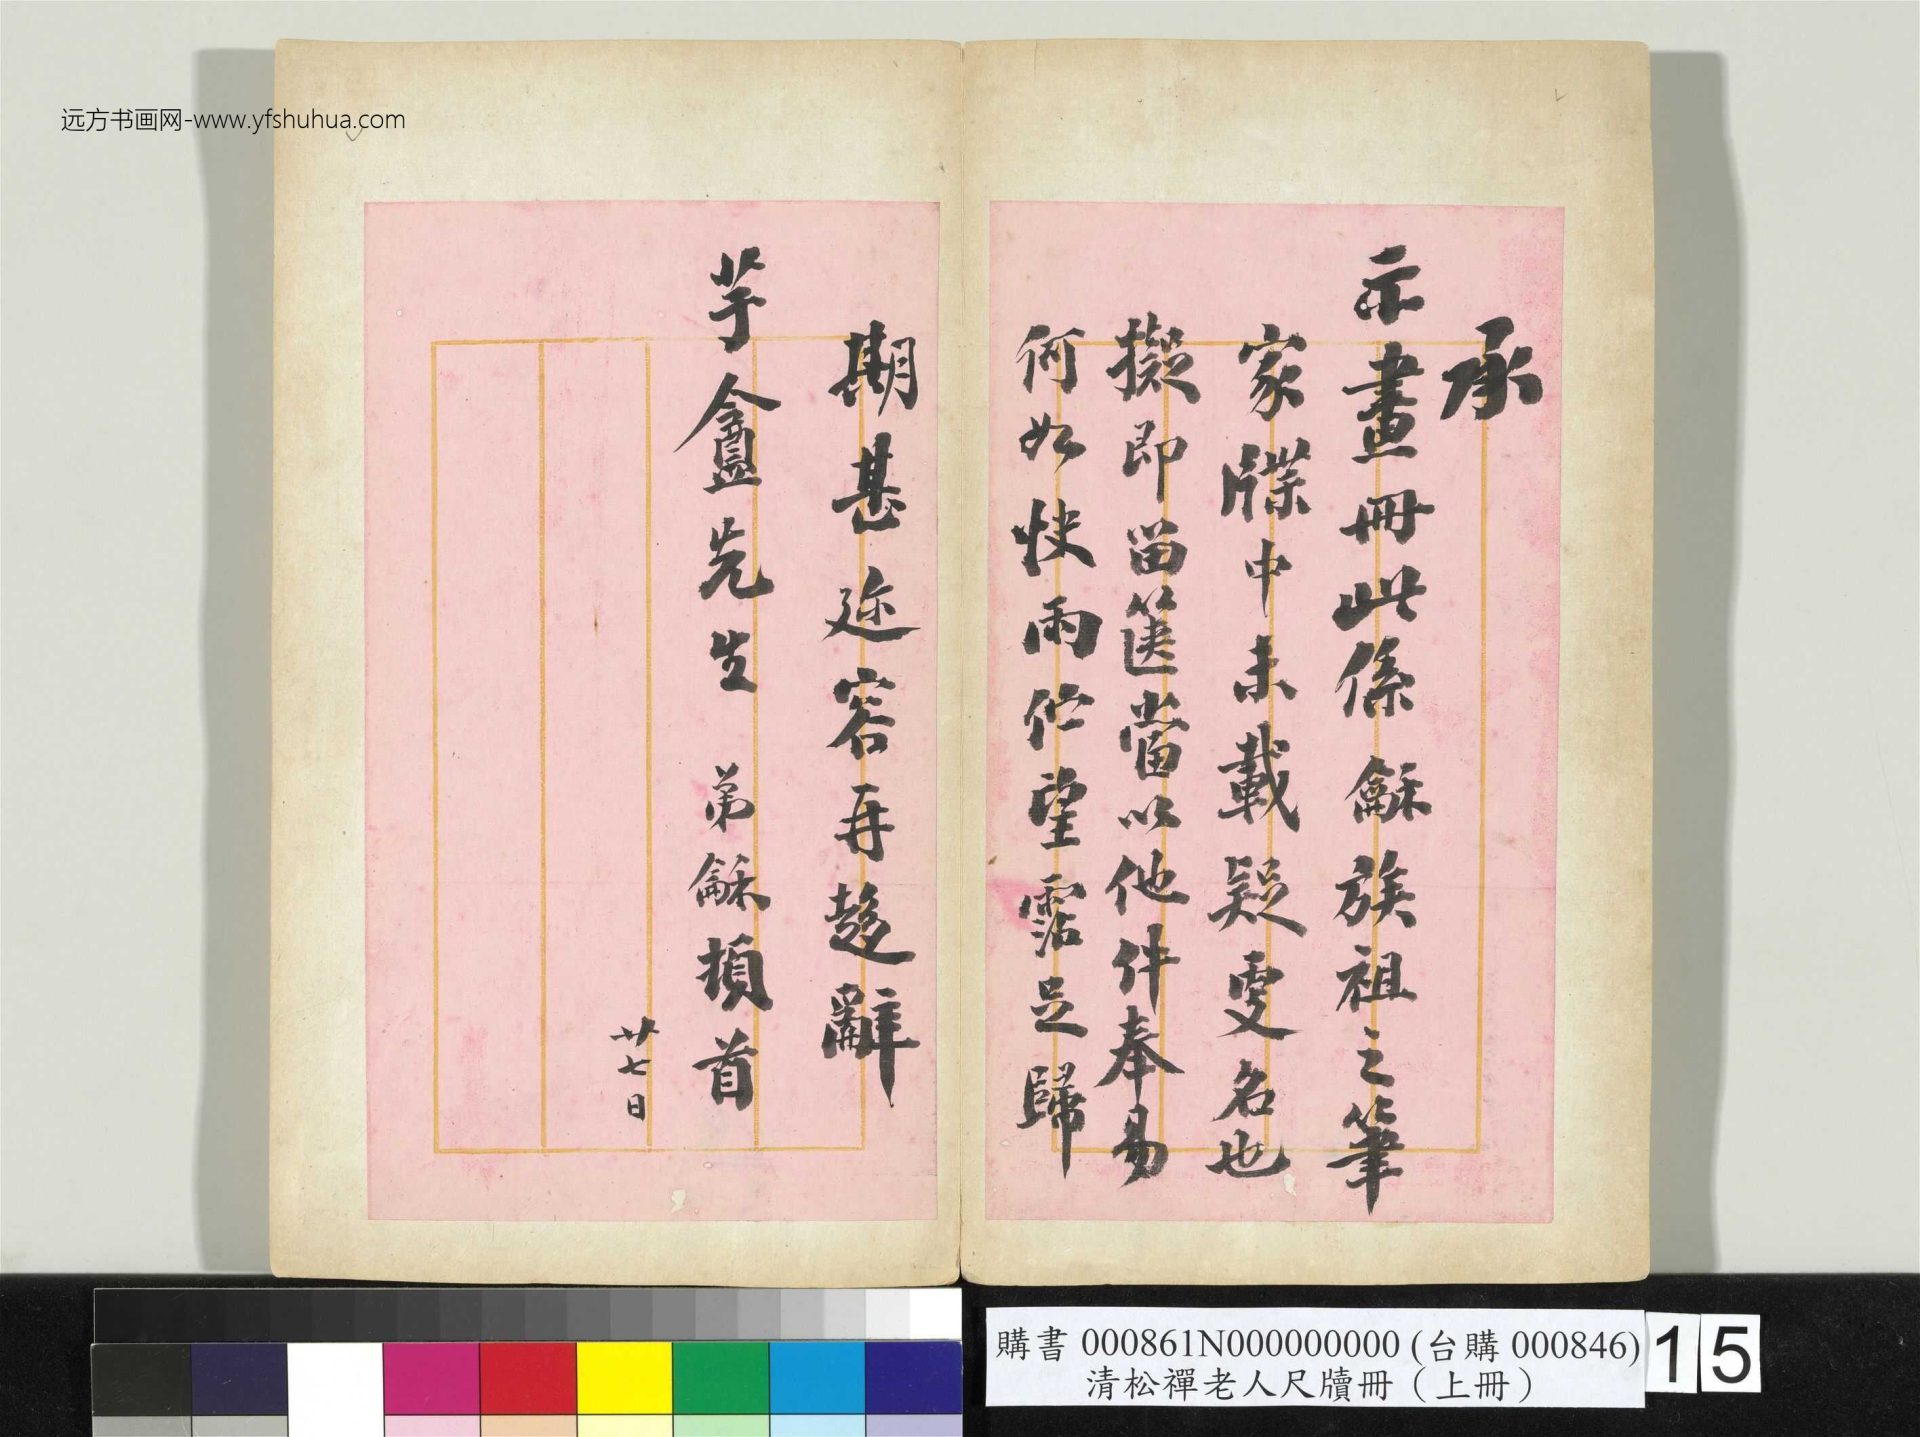 远方书画网-www.yfshuhua.com
承
示畫冊此係龢族祖之筆
家牒中未載疑更名也
擬即留篋當以他件奉易
何如快雨伫望霑足歸
期甚迩容再趨辭
芋盦先生 弟龢頓首
廿七日
購書 000861N000000000 (台購 000846)
清松禪老人尺牘冊（上冊）
15